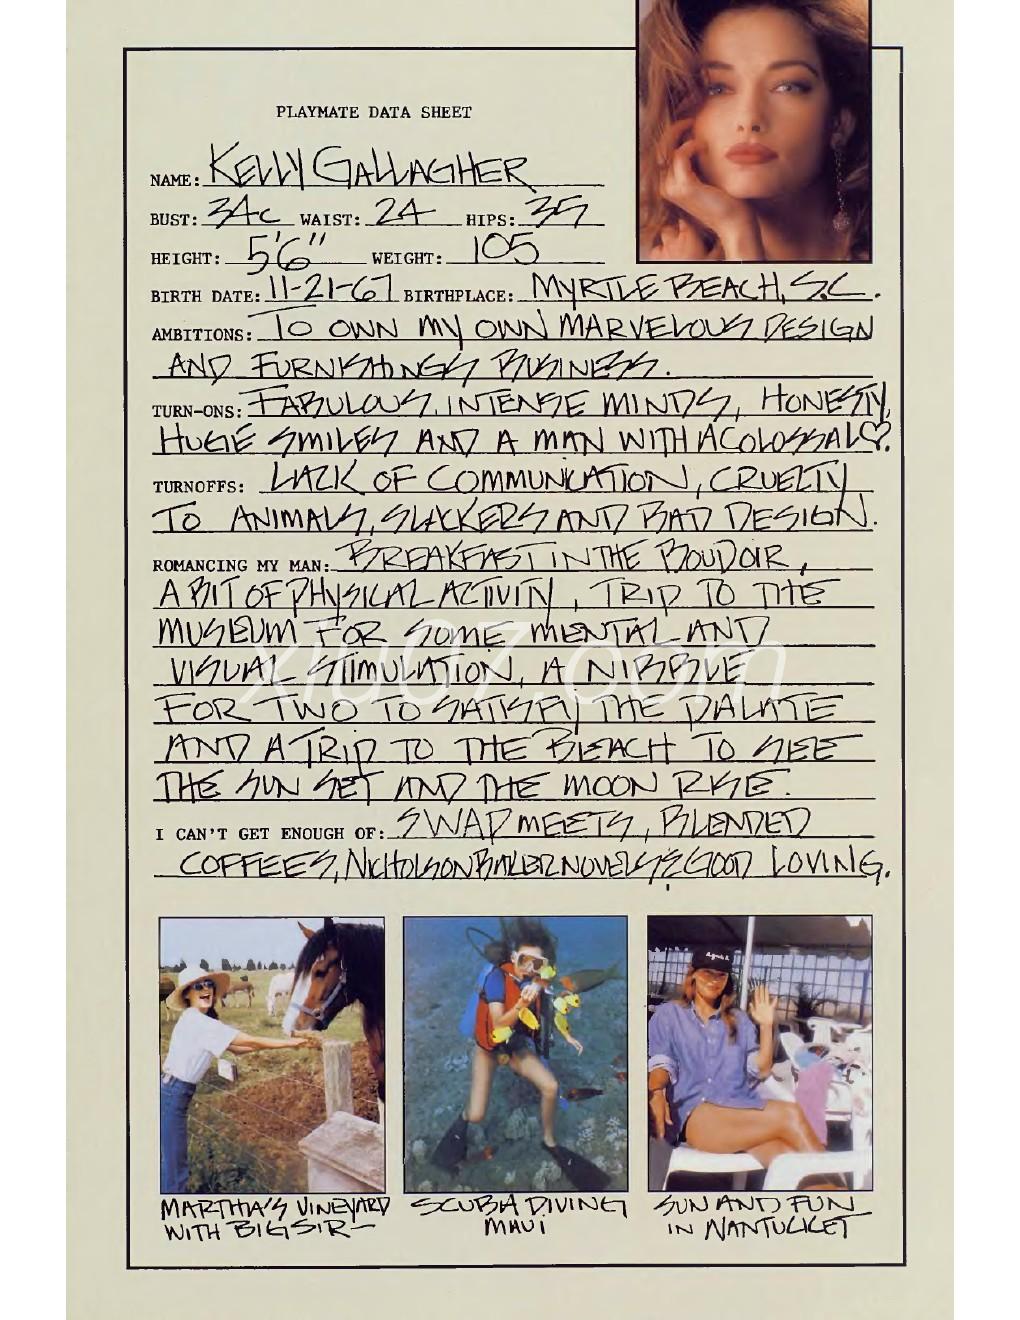 PLAYMATE DATA SHEET
NAME: KELLY GALLAGHER
BUST: 34C WAIST: 24 HIPS: 35
HEIGHT: 5'6" WEIGHT: 105
BIRTH DATE: 11-21-67 BIRTHPLACE: MYRTLE BEACH, S.C.
AMBITIONS: TO OWN MY OWN MARVELOUS DESIGN
AND FURNISHINGS BUSINESS.
TURN-ONS: FABULOUS, INTENSE MINDS, HONESTY,
HUGE SMILES AND A MAN WITH A COLOSSAL ♡.
TURNOFFS: LACK OF COMMUNICATION, CRUELTY
TO ANIMALS, SLACKERS AND BAD DESIGN.
ROMANCING MY MAN: BREAKFAST IN THE BOUDOIR,
A BIT OF PHYSICAL ACTIVITY, TRIP TO THE
MUSEUM FOR SOME MENTAL AND
VISUAL STIMULATION, A NIBBLE
FOR TWO TO SATISFY THE PALATE
AND A TRIP TO THE BEACH TO SEE
THE SUN SET AND THE MOON RISE.
I CAN'T GET ENOUGH OF: SWAP MEETS, BLENDED
COFFEES, NICHOLSON BAKER NOVELS & GOOD LOVING.
xiu07.com
agnès b.
MARTHA'S VINEYARD
WITH BIG SIR—
SCUBA DIVING
MAUI
SUN AND FUN
IN NANTUCKET